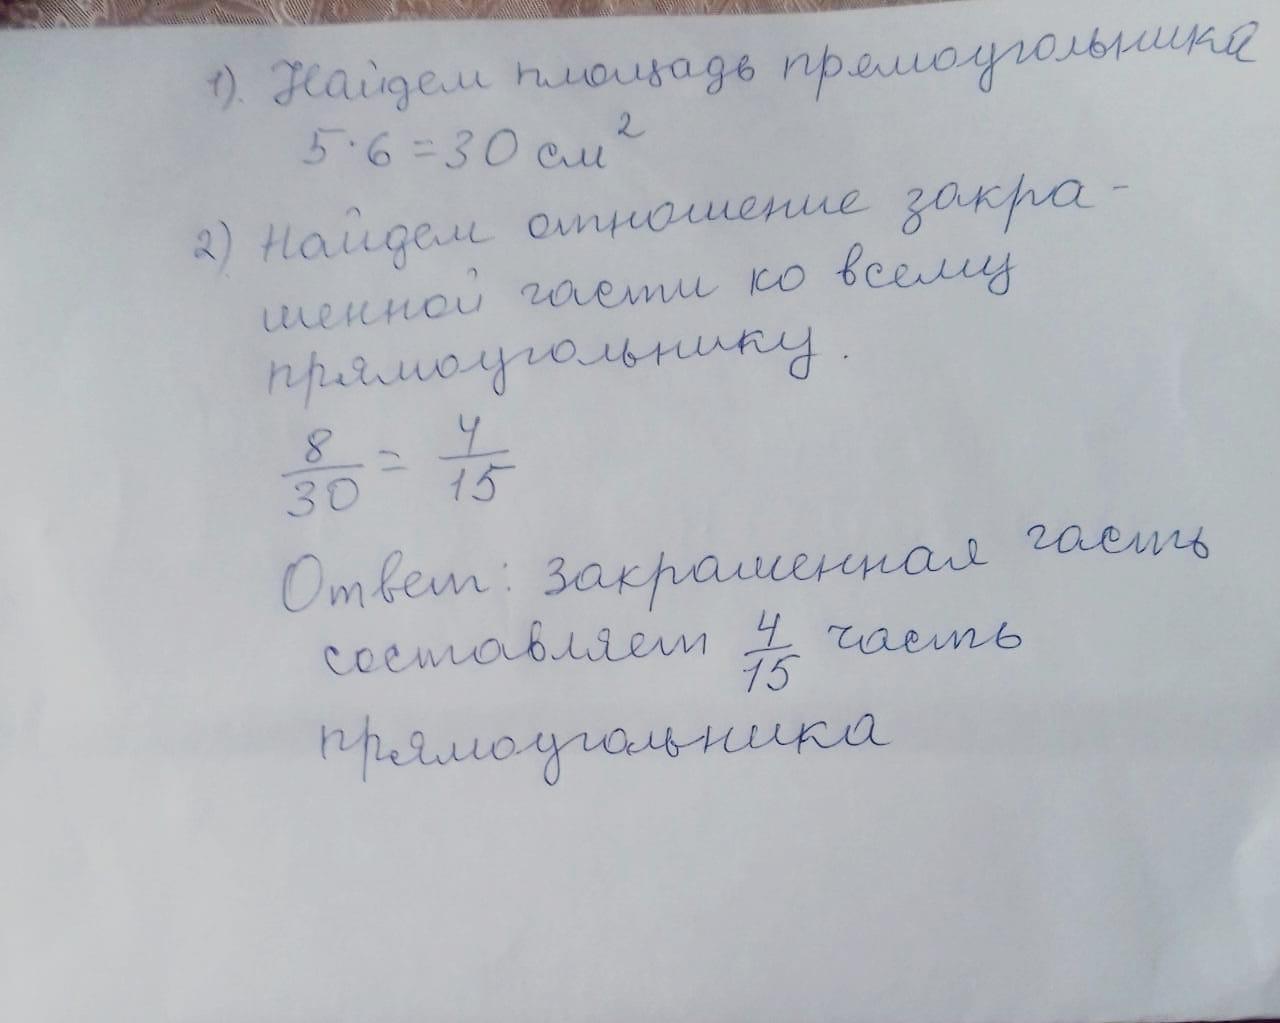 1). Найдем площадь прямоугольника
5·6=30 см²
2) Найдем отношение закра-
шенной части ко всему
прямоугольнику.
8/30 = 4/15
Ответ: закрашенная часть
составляет 4/15 часть
прямоугольника